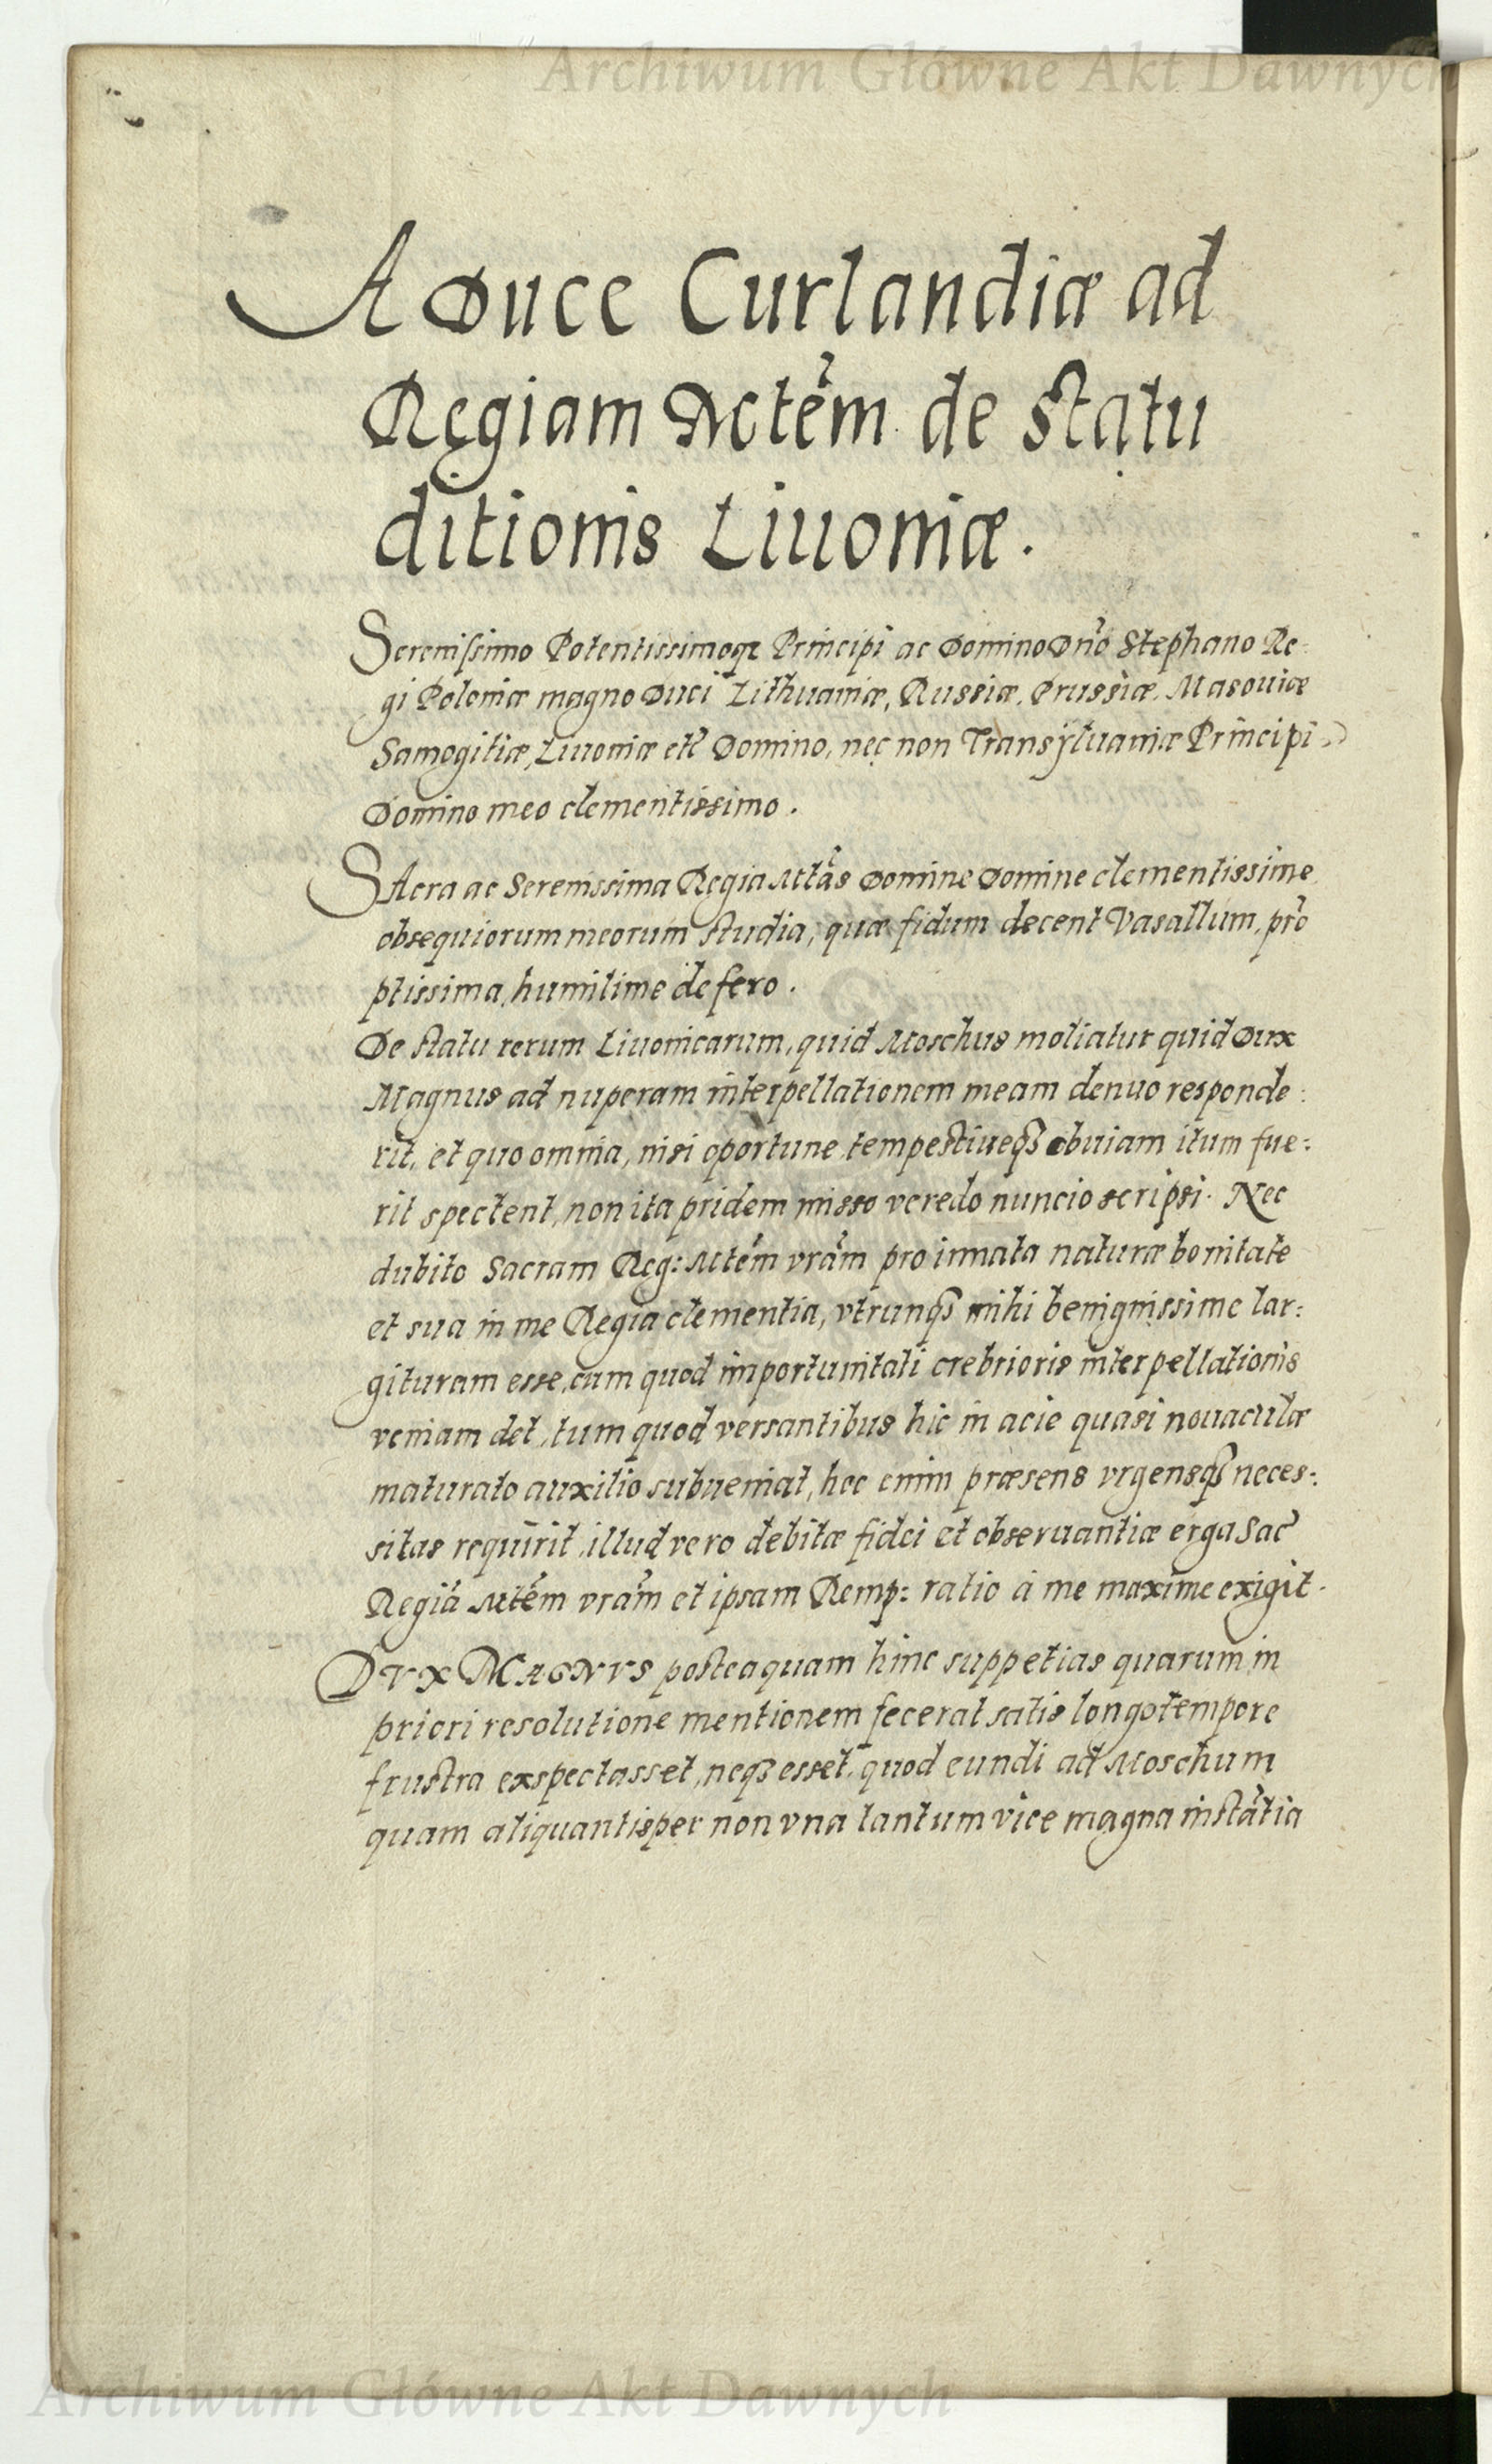 Archiwum Główne Akt Dawnych
A Duce Curlandiæ ad
Regiam Mtem de statu
ditionis Liuoniæ.
Serenissimo Potentissimoqȝ Principi ac Domino Dno Stephano Re-
gi Poloniæ magno Duci Lithuaniæ, Russiæ, Prussiæ, Masouiæ
Samogitiæ, Liuoniæ etc Domino, nec non Transyluaniæ Principi
Domino meo clementissimo.
SAcra ac Serenissima Regia Mtas Domine Domine clementissime
obsequiorum meorum studia, quæ fidum decent Vasallum, prõ
ptissima, humilime defero.
De statu rerum Liuonicarum, quid Moschus moliatur quid Dux
Magnus ad nuperam interpellationem meam denuo responde:
rit, et quo omnia, nisi oportune tempestiueqȝ obuiam itum fue:
rit spectent, non ita pridem misso veredo nuncio scripsi. Nec
dubito Sacram Reg: Mtem vram pro innata naturæ bonitate
et sua in me Regia clementia, vtrunqȝ mihi benignissime lar:
gituram esse, cum quod importunitati crebrioris interpellationis
veniam det, tum quod versantibus hic in acie quasi nouaculæ
maturato auxilio subueniat, hoc enim præsens vrgensqȝ neces:
sitas requirit, illud vero debitæ fidei et obseruantiæ erga Sac
Regiã Mtem vram et ipsam Remp: ratio á me maxime exigit.
DVX MAGNVS posteaquam hinc suppetias quarum in
priori resolutione mentionem fecerat satis longo tempore
frustra exspectasset, neqȝ esset, quod eundi ad Moschum
quam aliquantisper non vna tantum vice magna instãtia
Archiwum Główne Akt Dawnych